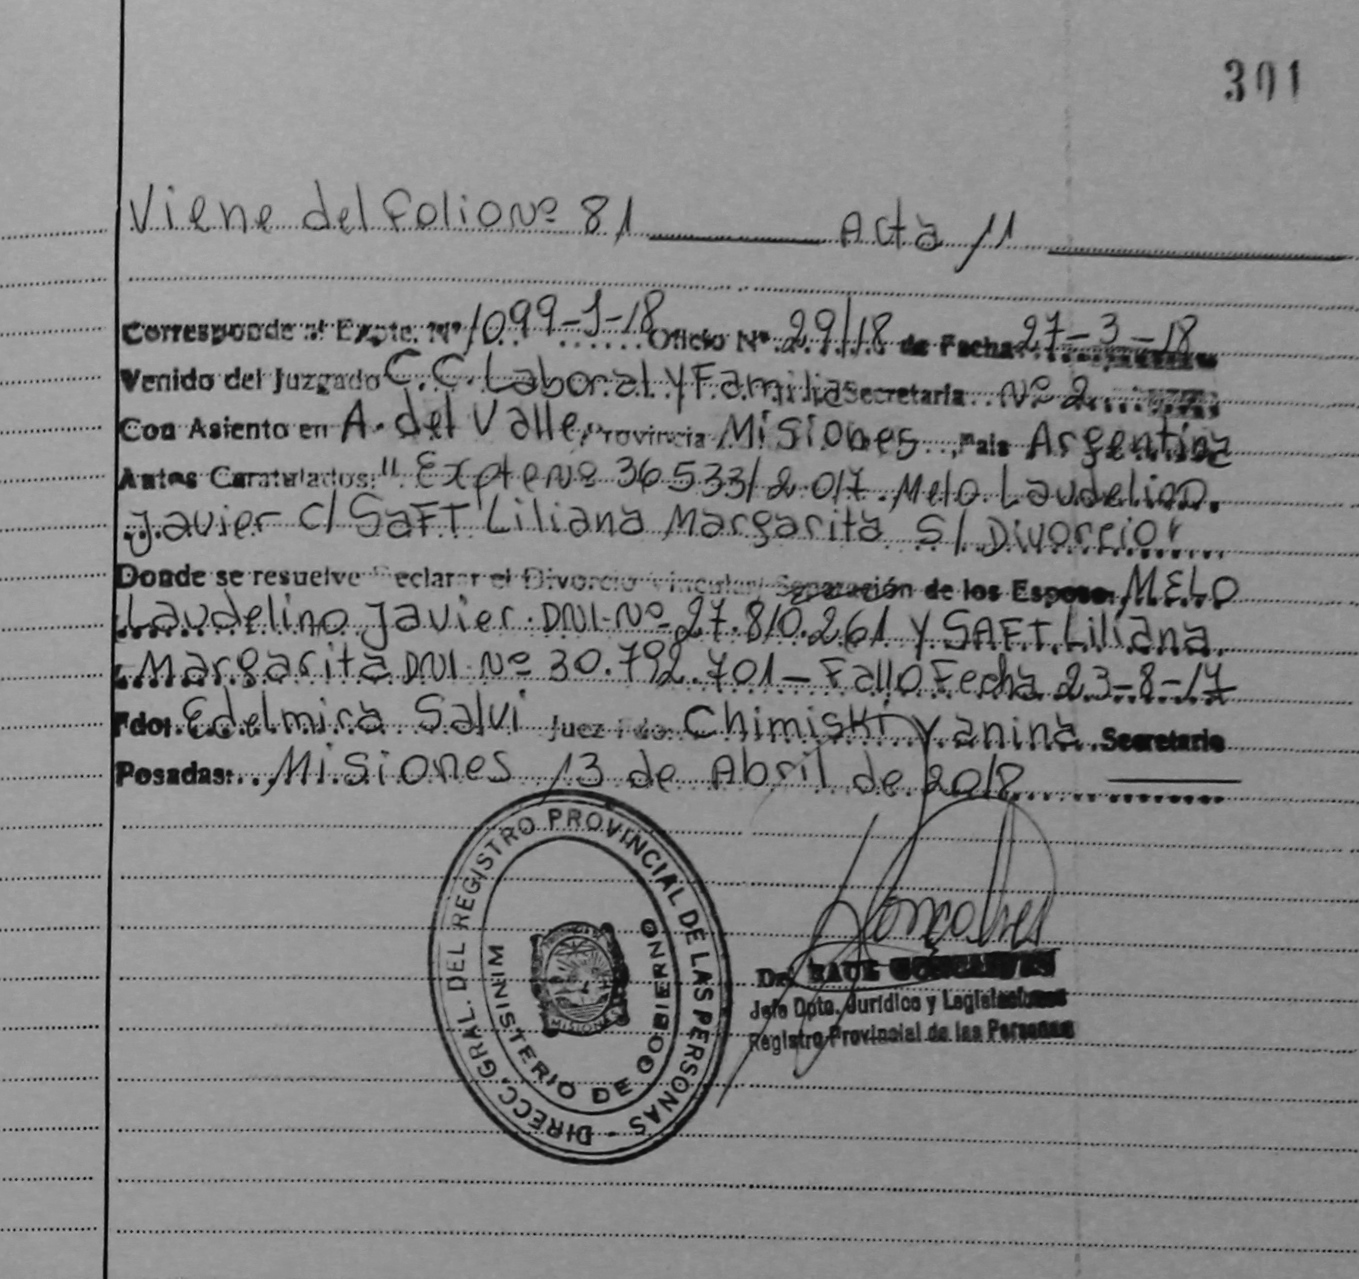 301
Viene del Folio Nº 81 Acta 11
Corresponde al Expte. Nº 1099-J-18 Oficio Nº 29/18 de Fecha 27-3-18
Venido del Juzgado C.C. Laboral y Familia Secretaria Nº 2
Con Asiento en A. del Valle Provincia Misiones País Argentina
Autos Caratulados: "Expte Nº 36533/2017. Melo Laudelino
Javier C/ SAFT Liliana Margarita S/ Divorcio"
Donde se resuelve Declarar el Divorcio Vincular Separación de los Esposos MELO
Laudelino Javier. DNI. Nº 27.810.261 y SAFT Liliana
Margarita DNI. Nº 30.792.701- Fallo Fecha 23-8-17
Fdo: Edelmira Salvi Juez Fdo: Chimiski Yanina Secretario
Posadas: Misiones 13 de Abril de 2018
DIRECC. GRAL. DEL REGISTRO PROVINCIAL DE LAS PERSONAS -
MINISTERIO DE GOBIERNO
MISIONES
Goncalves
Dr. RAUL GONCALVES
Jefe Dpto. Jurídico y Legislaciones
Registro Provincial de las Personas